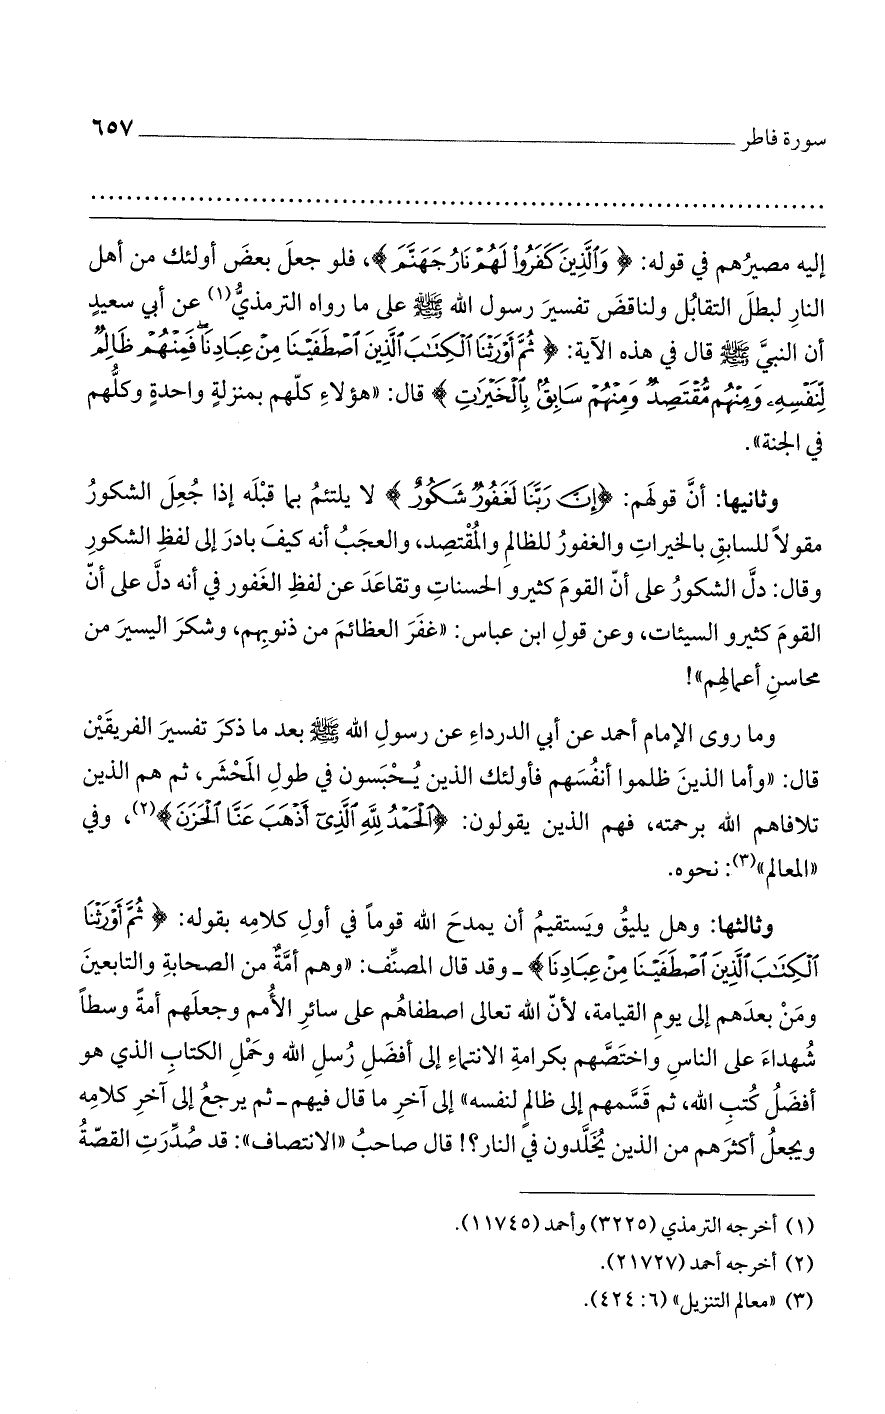 سورة فاطر ٦٥٧
إليه مصيرُهم في قوله: ﴿وَٱلَّذِينَ كَفَرُواْ لَهُمْ نَارُ جَهَنَّمَ﴾، فلو جعلَ بعضَ أولئك من أهل
النارِ لبطلَ التقابُل ولناقضَ تفسيرَ رسول الله ﷺ على ما رواه الترمذيُّ(١) عن أبي سعيدٍ
أن النبيَّ ﷺ قال في هذه الآية: ﴿ثُمَّ أَوْرَثْنَا ٱلْكِتَٰبَ ٱلَّذِينَ ٱصْطَفَيْنَا مِنْ عِبَادِنَاۖ فَمِنْهُمْ ظَالِمٌ
لِّنَفْسِهِۦ وَمِنْهُم مُّقْتَصِدٌ وَمِنْهُمْ سَابِقٌۢ بِٱلْخَيْرَٰتِ﴾ قال: «هؤلاءِ كلّهم بمنزلةٍ واحدةٍ وكلُّهم
في الجنة».
وثانيها: أنَّ قولَهم: ﴿إِنَّ رَبَّنَا لَغَفُورٌ شَكُورٌ﴾ لا يلتئمُ بما قبْلَه إذا جُعِلَ الشكورُ
مقولاً للسابقِ بالخيراتِ والغفورُ للظالمِ والمُقْتصِد، والعجَبُ أنه كيفَ بادرَ إلى لفظِ الشكورِ
وقال: دلَّ الشكورُ على أنّ القومَ كثيرو الحسناتِ وتقاعَدَ عن لفظِ الغَفور في أنه دلَّ على أنّ
القومَ كثيرو السيئات، وعن قولِ ابن عباس: «غفَرَ العظائمَ من ذنوبِهم، وشكرَ اليسيرَ من
محاسنِ أعمالِهم»!
وما روى الإمام أحمد عن أبي الدرداءِ عن رسولِ الله ﷺ بعد ما ذكرَ تفسيرَ الفريقَيْن
قال: «وأما الذينَ ظلموا أنفُسَهم فأولئك الذين يُحْبَسون في طولِ المَحْشَر، ثم هم الذين
تلافاهم الله برحمته، فهم الذين يقولون: ﴿ٱلْحَمْدُ لِلَّهِ ٱلَّذِىٓ أَذْهَبَ عَنَّا ٱلْحَزَنَ﴾(٢)، وفي
«المعالم»(٣): نحوه.
وثالثها: وهل يليقُ ويَستقيمُ أن يمدحَ الله قوماً في أولِ كلامِه بقوله: ﴿ثُمَّ أَوْرَثْنَا
ٱلْكِتَٰبَ ٱلَّذِينَ ٱصْطَفَيْنَا مِنْ عِبَادِنَا﴾ ـ وقد قال المصنِّف: «وهم أمَّةٌ من الصحابةِ والتابعينَ
ومَنْ بعدَهم إلى يومِ القيامة، لأنّ الله تعالى اصطفاهُم على سائرِ الأُمم وجعلَهم أمةً وسطاً
شُهداءَ على الناسِ واختَصَّهم بكرامةِ الانتماءِ إلى أفضَلِ رُسلِ الله وحَمْلِ الكتابِ الذي هو
أفضَلُ كُتبِ الله، ثم قَسَّمهم إلى ظالمٍ لنفسه» إلى آخرِ ما قال فيهم ـ ثم يرجعُ إلى آخرِ كلامِه
ويجعلُ أكثرَهم من الذين يُخَلَّدون في النار؟! قال صاحبُ «الانتصاف»: قد صُدِّرَتِ القصّةُ
(١) أخرجه الترمذي (٣٢٢٥) وأحمد (١١٧٤٥).
(٢) أخرجه أحمد (٢١٧٢٧).
(٣) «معالم التنزيل» (٦: ٤٢٤).